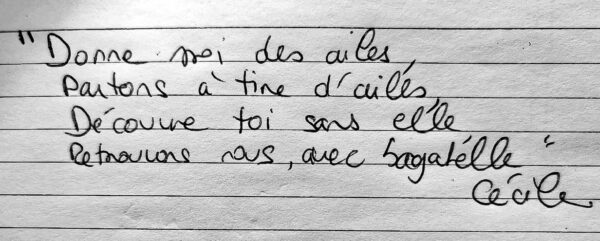 "Donne moi des ailes,
Partons à tire d'ailes,
Découvre toi sans elle
Retrouvons nous, avec bagatelle"
Cécile